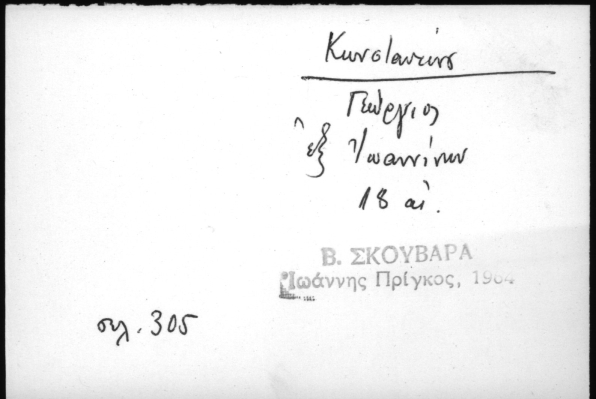 Κωνσταντίνου
Γεώργιος
ἐξ Ἰωαννίνων
18 αἰ.
Β. ΣΚΟΥΒΑΡΑ
Ἰωάννης Πρίγκος, 1964
σελ. 305